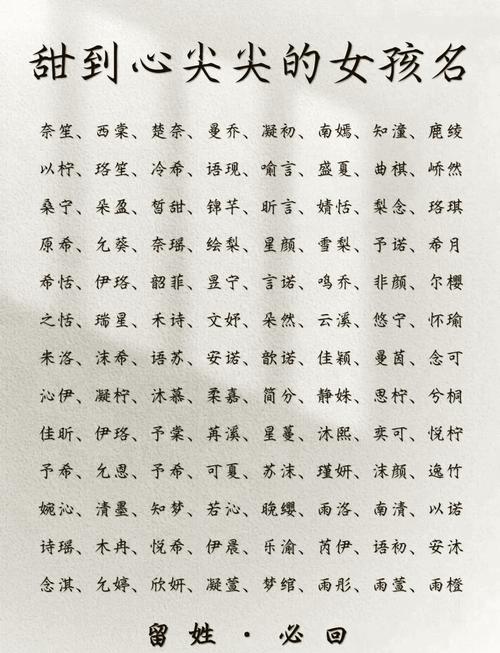 甜到心尖尖的女孩名
奈笙、西棠、楚奈、曼乔、凝初、南嫣、知潼、鹿绫
以柠、珞笙、冷希、语现、喻言、盛夏、曲棋、峤然
桑宁、朵盈、皙甜、锦芊、昕言、婧恬、梨念、珞琪
原希、允葵、奈瑶、绘梨、星颜、雪梨、予诺、希月
希恬、伊珞、韶菲、昱宁、言诺、鸣乔、非颜、尔樱
之恬、瑞星、禾诗、文妤、朵然、云溪、悠宁、怀瑜
米洛、沫希、语苏、安诺、歆诺、佳颖、曼茵、念可
沁伊、凝柠、沐慕、柔嘉、简分、静姝、思柠、兮桐
佳昕、伊珞、予棠、苒溪、星蔓、沐熙、奕可、悦柠
予希、允恩、予希、可夏、苏沫、瑾妍、沫颜、逸竹
婉沁、清墨、知梦、若沁、晚缨、雨洛、南清、以诺
诗瑶、木冉、悦希、伊晨、乐渝、芮伊、语初、安沐
念淇、允婷、欣妍、凝萱、梦绾、雨彤、雨萱、雨橙
留姓·必回